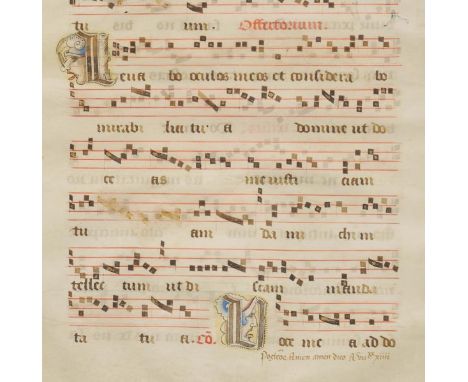 tu um. Offertorium.
Leua bo oculos meos et considera bo
mirabi lia tu a domine ut do
ce as me iusti ciam
tu am da mi chi in
tellec tum ut di scam manda
ta tu a. Cō. Uoce me a ad do
Amen amen dico